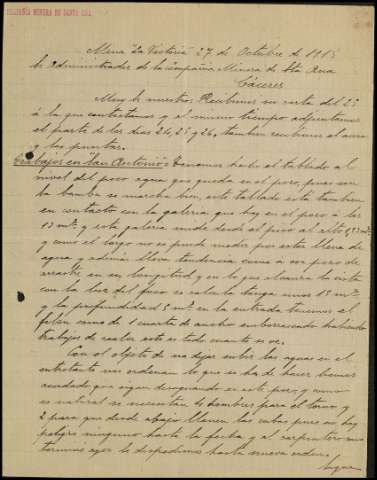 COMPAÑIA MINERA DE SANTA ANA
Mina "La Victoria" 27 de Octubre de 1915
Sr. Administrador de la Compañia Minera de Sta Ana
Cáceres
Muy Sr. nuestro: Recibimos su carta del 25
á la que contestamos y al mismo tiempo adjuntamos
el parte de los dias 24, 25 y 26, tambien recibimos el acero
y las puertas.
Trabajos en San Antonio: Tenemos hasta el tablado al
nivel del poco agua que queda en el pozo, pues con
la bomba se marcha bien, este tablado está tambien
en contacto con la galeria que hay en el pozo á los
13 mts, y esta galeria mide desde el piso al alto
y como el largo no se puede medir por esta llena de
agua y además lleva tendencia como a un pozo de
arrastre en su longitud y en lo que alcanza la vista
con la luz del foco se calcula tenga unos 15 mts
y la profundidad 5 mts en la entrada tenemos el
filon como de 1 cuarta de ancho emborrascado habiendo
trabajos de realce esto es todo cuanto se ve.
Con el objeto de no dejar subir las aguas en el
entretanto nos ordenan lo que se ha de hacer hemos
acordado que sigan desaguando en este pozo, y como
es natural se necesitan 4 hombres para el torno y
2 para que desde abajo llenen las cubas pues no hay
peligro ninguno hasta la fecha y el carpintero como
termine ayer lo despedimos hasta nueva orden.
Sigue